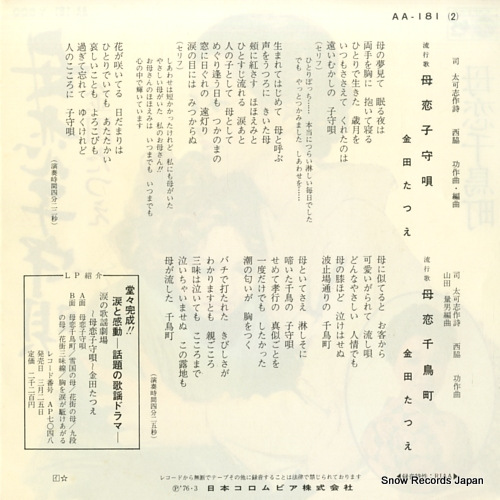 AA-181 (2)
司 太可志作詩 西脇 功作曲・編曲
流行歌 母恋子守唄
金田たつえ
母の夢見て 眠る夜は
両手を胸に 抱いて寝る
ひとりで生きた 歳月を
いつもささえて くれたのは
遠いむかしの 子守唄
(セリフ)
ひとりぼっち……本当につらい淋しい毎日でした
でも やっとつかみました しあわせを……
生まれてはじめて 母と呼ぶ
声をうつろに きいた母
頬に紅さす ほほえみと
ひとすじ流れる 涙あと
人の子として 母として
めぐり逢う日も つかのまの
窓に日ぐれの 遠灯り
涙の目には みつからぬ
(セリフ)
しあわせは短かかったけれど 私にも母がいた
やさしい母がいた 私のお母さん!!
お母さんのほほえみは いつまでも いつまでも
心の中で輝いています
花が咲いてる 日だまりは
ひとりでいても あたたかい
哀しいことも よろこびも
過ぎて忘れて ゆくけれど
人のこころに 子守唄
(演奏時間四分二二秒)
司 太可志作詩 西脇 功作曲
山田 量男編曲
流行歌 母恋千鳥町
金田たつえ
母に似てると お客から
可愛いがられて 流し唄
どんなやさしい 人情でも
母の膝ほど 泣けはせぬ
波止場通りの 千鳥町
母といてさえ 淋しそに
啼いた千鳥の 子守唄
せめて孝行の 真似ごとを
一度だけでも したかった
潮の匂いが 胸をつく
バチで打たれた きびしさが
わかりますとも 親ごころ
三味は泣いても こころまで
泣いちゃいませぬ この露地も
母が流した 千鳥町
(演奏時間四分二五秒)
LP紹介
堂々完成!!
涙と感動―話題の歌謡ドラマ―
涙の歌謡劇場
～母恋子守唄～金田たつえ
A面 母恋子守唄
B面 母恋千鳥町/雪国の母/花街の母/九段
の母/花街三味線/胸を涙が駆けあがる
レコード番号 AP七〇四八
発売日 三月二五日
定価 二千二百円
レコードから無断でテープその他に録音することは法律で禁じられております
Ⓟ'76・3 日本コロムビア株式会社
Snow Records Japan